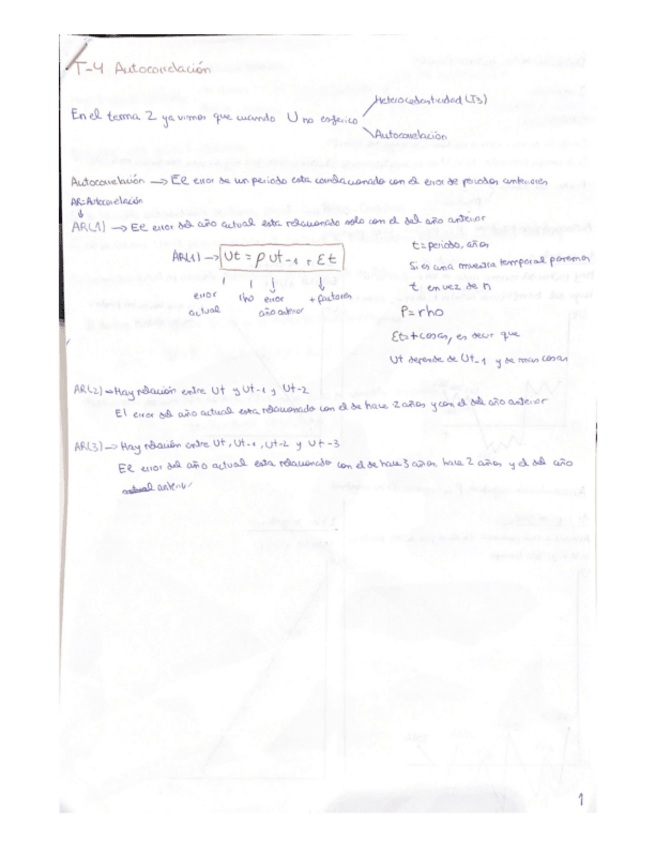 T-4 Autocorrelación
Heterocedasticidad (T3)
En el tema 2 ya vimos que cuando U no esférico
Autocorrelación
Autocorrelación → El error de un periodo esta correlacionado con el error de periodos anteriores
AR=Autocorrelación
↓
AR(1) → El error del año actual esta relacionado solo con el del año anterior
AR(1) → Ut = ρ Ut-1 + Ɛt
error actual
rho
error año anterior
+ factores
t = periodo, años
Si es una muestra temporal ponemos
t en vez de n
P = rho
Ɛt = + cosas, es decir que
Ut depende de Ut-1 y de mas cosas
AR(2) → Hay relación entre Ut y Ut-1 y Ut-2
El error del año actual esta relacionado con el de hace 2 años y con el del año anterior
AR(3) → Hay relación entre Ut, Ut-1, Ut-2 y Ut-3
El error del año actual esta relacionado con el de hace 3 años, hace 2 años y el del año
actual anterior
1